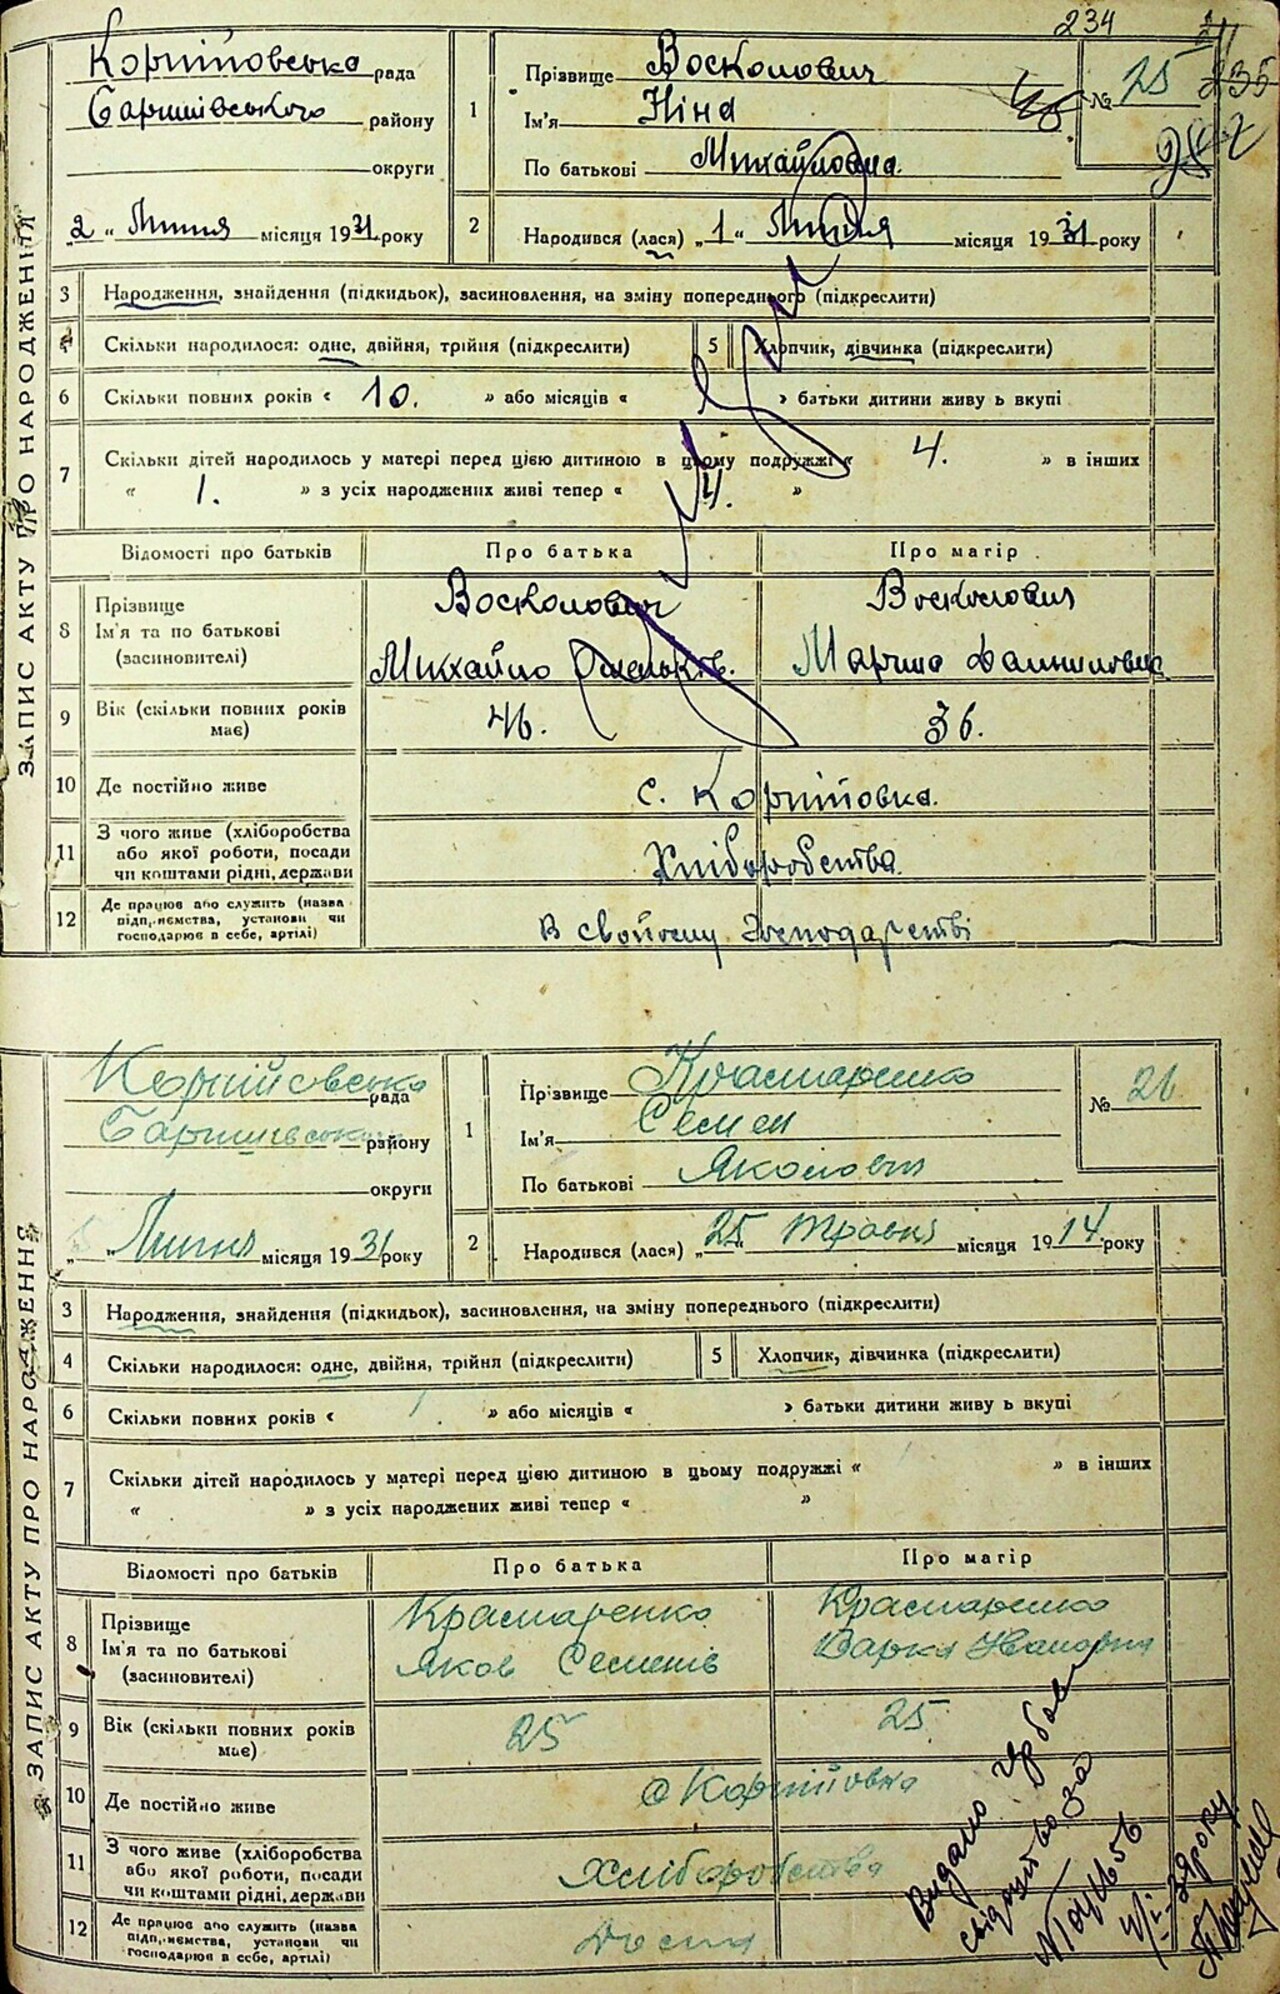 234
ЗАПИС АКТУ ПРО НАРОДЖЕННЯ
Корніївська рада
Баришівського району
округи
„2“ Липня місяця 1931 року
1
Прізвище Восколович
Ім'я Ніна
По батькові Михайловна.
№ 25
235
2
Народився (лася) „1“ Липня місяця 1931 року
3 Народження, знайдення (підкидьок), засиновлення, на зміну попереднього (підкреслити)
4 Скільки народилося: одне, двійня, трійня (підкреслити)
5 Хлопчик, дівчинка (підкреслити)
6 Скільки повних років « 10. » або місяців « » батьки дитини живу ь вкупі
7 Скільки дітей народилось у матері перед цією дитиною в цьому подружжі « 4. » в інших
« 1. » з усіх народжених живі тепер « 4. »
Відомості про батьків Про батька Про матір
8 Прізвище
Ім'я та по батькові
(засиновителі)
Восколович
Михайло
Восколович
Марина
9 Вік (скільки повних років
має)
46. 36.
10 Де постійно живе с. Корніївка.
11 З чого живе (хліборобства
або якої роботи, посади
чи коштами рідні, держави
Хліборобства.
12 Де працює або служить (назва
підприємства, установи чи
господарює в себе, артілі)
В свойому господарстві
ЗАПИС АКТУ ПРО НАРОДЖЕННЯ
Корніївська рада
Баришівського району
округи
Липня місяця 1931 року
1
Прізвище Крамаренко
Ім'я Семен
По батькові Якович
№ 26
2
Народився (лася) „25“ Травня місяця 1914 року
3 Народження, знайдення (підкидьок), засиновлення, на зміну попереднього (підкреслити)
4 Скільки народилося: одне, двійня, трійня (підкреслити)
5 Хлопчик, дівчинка (підкреслити)
6 Скільки повних років « » або місяців « » батьки дитини живу ь вкупі
7 Скільки дітей народилось у матері перед цією дитиною в цьому подружжі « » в інших
« » з усіх народжених живі тепер « »
Відомості про батьків Про батька Про матір
8 Прізвище
Ім'я та по батькові
(засиновителі)
Крамаренко
Яков Семенів
Крамаренко
Варка
9 Вік (скільки повних років
має)
25 25
10 Де постійно живе с Корніївка
11 З чого живе (хліборобства
або якої роботи, посади
чи коштами рідні, держави
Хліборобства
12 Де працює або служить (назва
підприємства, установи чи
господарює в себе, артілі)
Видано
свідоцтво за
№
року